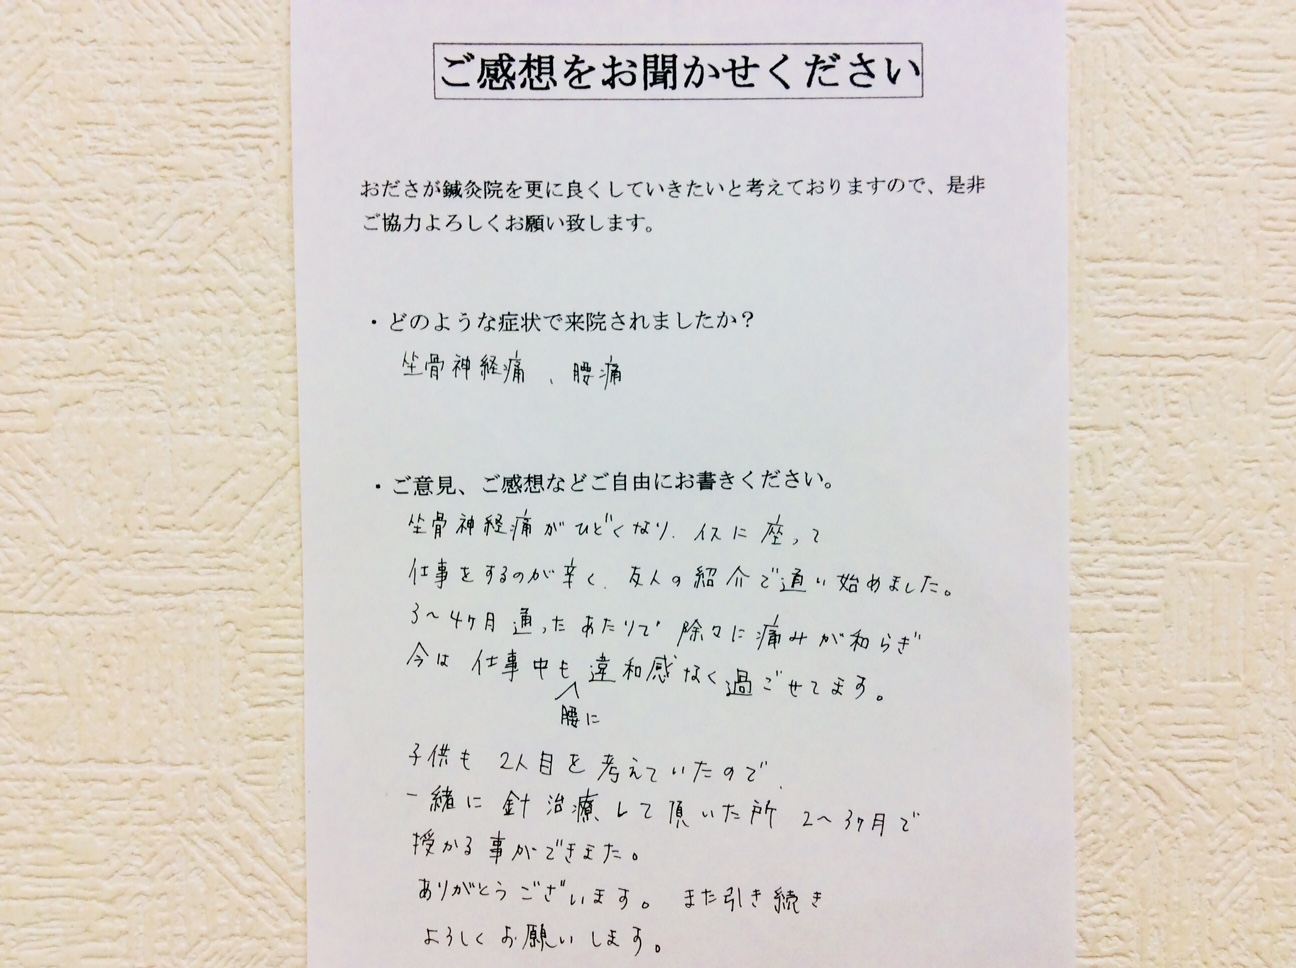 ご感想をお聞かせください
おださが鍼灸院を更に良くしていきたいと考えておりますので、是非
ご協力よろしくお願い致します。
・どのような症状で来院されましたか？
坐骨神経痛、腰痛
・ご意見、ご感想などご自由にお書きください。
坐骨神経痛がひどくなり、イスに座って
仕事をするのが辛く、友人の紹介で通い始めました。
3〜4ヶ月通ったあたりで除々に痛みが和らぎ
今は仕事中も違和感なく過ごせてます。
腰に
子供も2人目を考えていたので、
一緒に針治療して頂いた所2〜3ヶ月で
授かる事ができました。
ありがとうございます。また引き続き
よろしくお願いします。